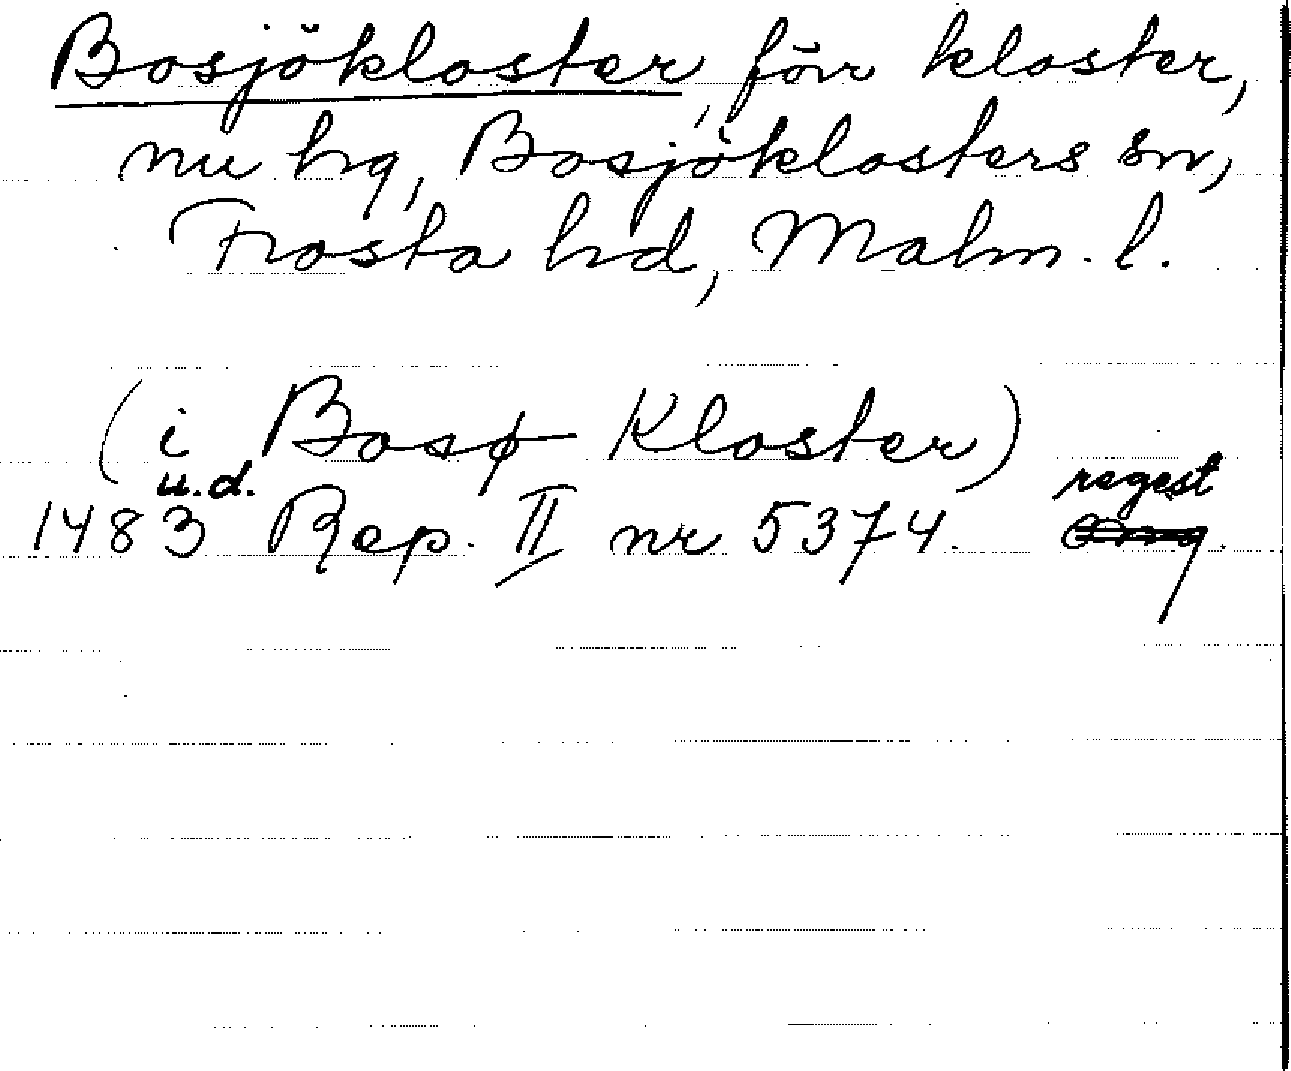 Bosjökloster, förr kloster,
nu hg, Bosjöklosters sn,
Frosta hd, Malm. l.
(i Bosø Kloster)
u.d.
regest
1483 Rep. II nr 5374.